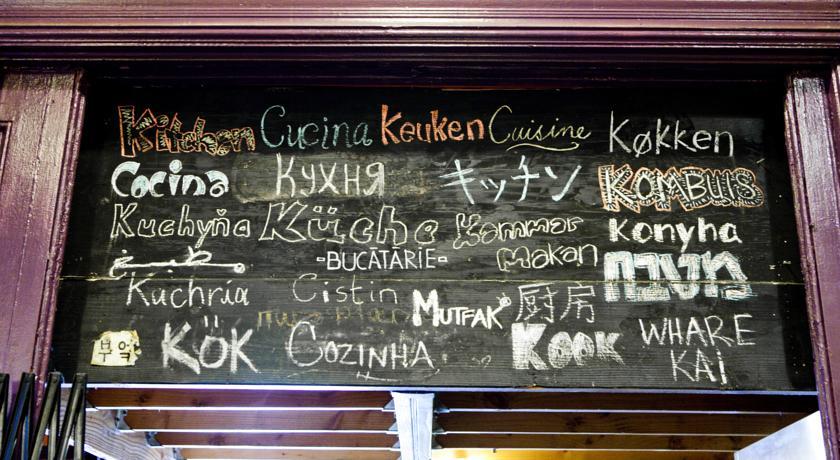 Kitchen Cucina Keuken Cuisine Køkken
Cocina Кухня キッチン KOMBUIS
Kuchyňa Küche Kammar Makan konyha
طبخ -BUCĂTARIE- מטבח
Kuchnia Cistin MUTFAK 厨房
부엌 KÖK COZINHA KOOK WHARE KAI